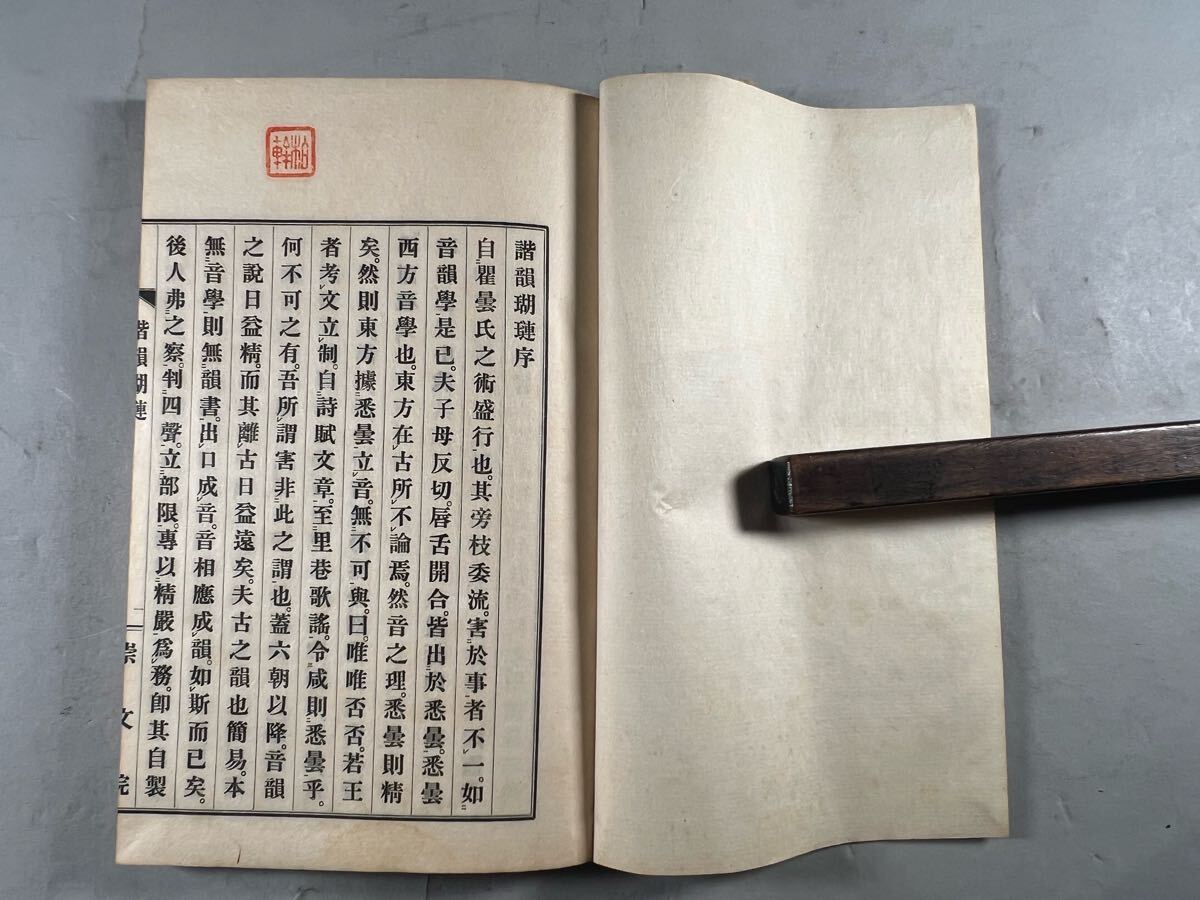 諧韻瑚璉序
自瞿曇氏之術盛行也。其旁枝委流。害於事者不一。如
音韻學是已。夫子母反切。唇舌開合。皆出於悉曇。悉曇
西方音學也。東方在古所不論焉。然音之理。悉曇則精
矣。然則東方據悉曇立音。無不可與。曰。唯唯否否。若王
者考文立制。自詩賦文章。至里巷歌謠。令咸則悉曇乎。
何不可之有。吾所謂害非此之謂也。蓋六朝以降。音韻
之說日益精。而其離古日益遠矣。夫古之韻也簡易。本
無音學。則無韻書。出口成音。音相應成韻。如斯而已矣。
後人弗之察。判四聲。立部限。專以精嚴爲務。卽其自製
諧韻瑚璉
一
崇文院